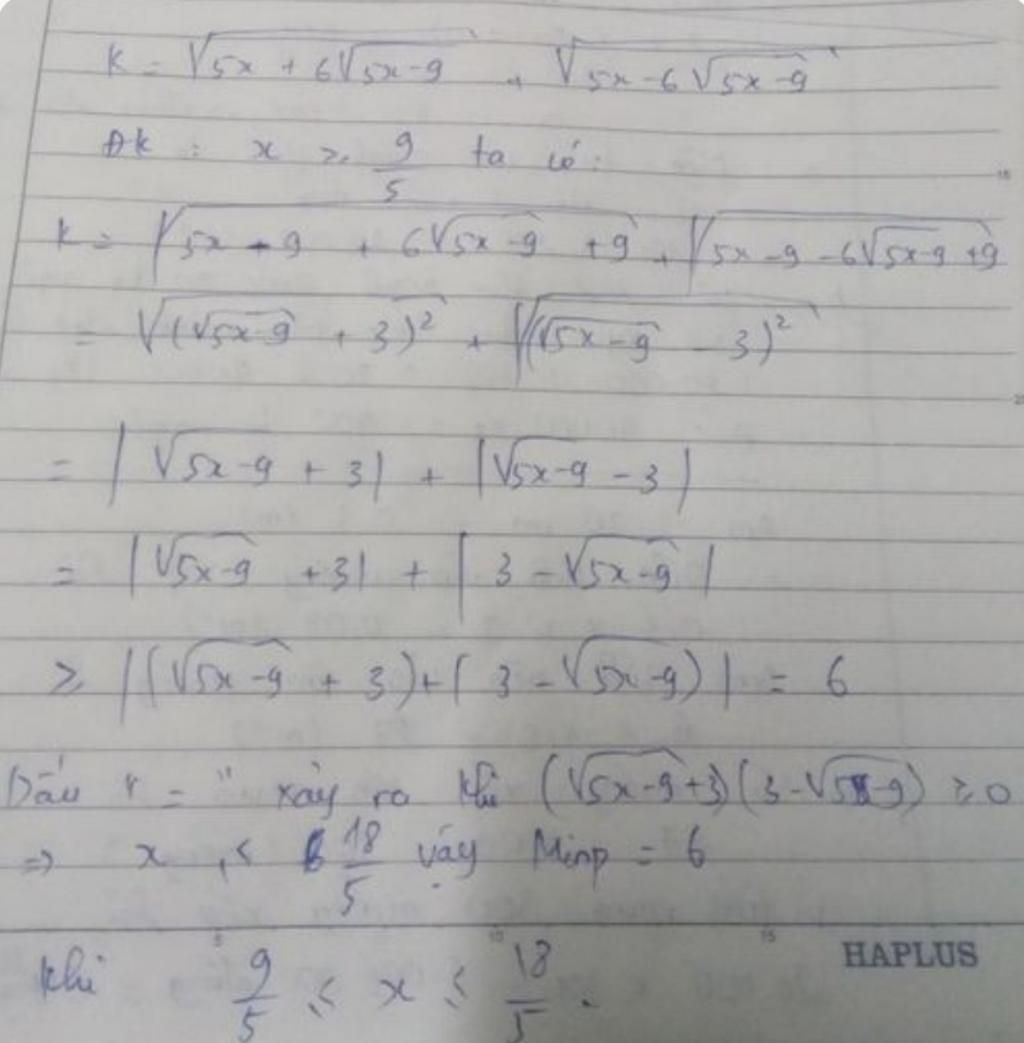 K = √(5x + 6√(5x-9)) + √(5x-6√(5x-9))
Đk : x ≥ 9/5 ta có :
K = √(5x - 9 + 6√(5x-9) + 9) + √(5x-9-6√(5x-9)+9)
= √((√(5x-9) + 3)²) + √((√(5x-9) - 3)²)
= |√(5x-9) + 3| + |√(5x-9) - 3|
= |√(5x-9) + 3| + |3 - √(5x-9)|
≥ |(√(5x-9) + 3) + (3 - √(5x-9))| = 6
Dấu "=" xảy ra khi (√(5x-9)+3)(3-√(5x-9)) ≥ 0
=> x ≤ 18/5 vậy Minp = 6
khi 9/5 ≤ x ≤ 18/5 .
HAPLUS